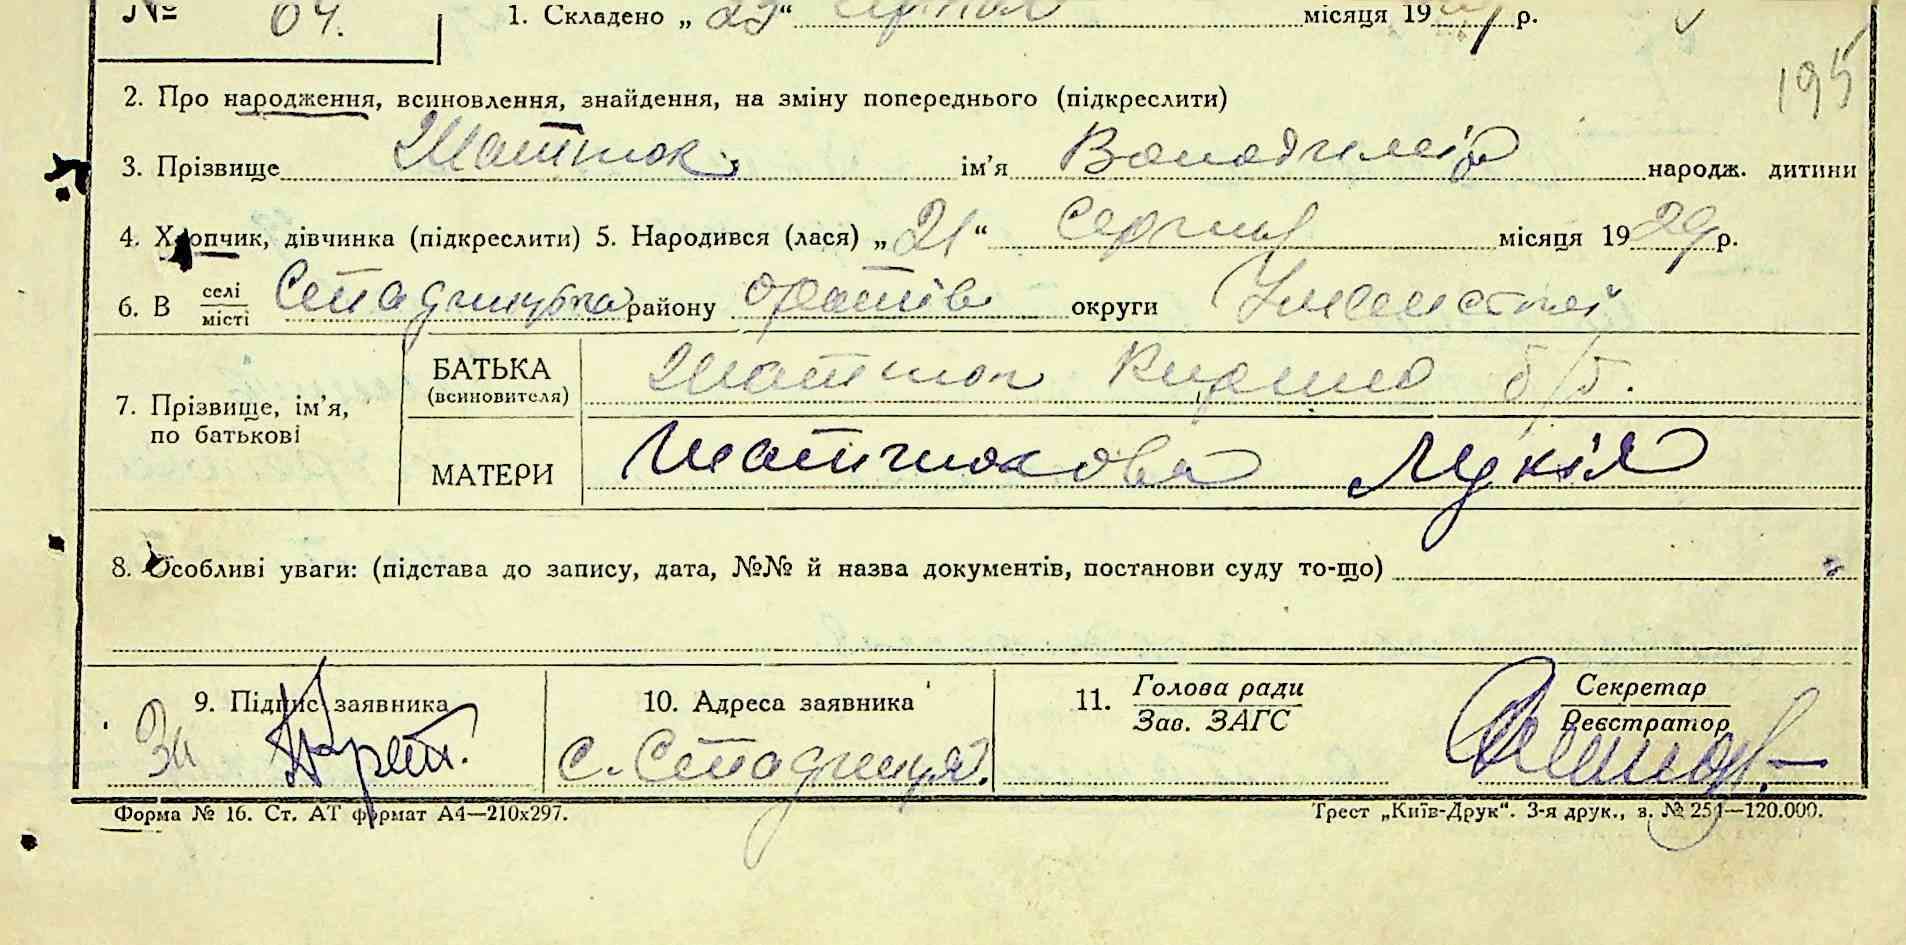 № 64. 1. Складено „29“ серпня місяця 1929 р.
195
2. Про народження, всиновлення, знайдення, на зміну попереднього (підкреслити)
3. Прізвище Шатнюк ім’я Володимир народж. дитини
4. Хлопчик, дівчинка (підкреслити) 5. Народився (лася) „21“ Серпня місяця 1929 р.
6. В селі місті Стадниця району Оратів округи Уманської
7. Прізвище, ім’я, по батькові
БАТЬКА (всиновителя) Шатнюк Кирило б/б.
МАТЕРИ Шатнюкова Лукія
8. Особливі уваги: (підстава до запису, дата, №№ й назва документів, постанови суду то-що)
9. Підпис заявника За
10. Адреса заявника с. Стадниця.
11. Голова ради Зав. ЗАГС
Секретар Реєстратор
Форма № 16. Ст. АТ формат А4—210х297.
Трест „Київ-Друк“. 3-я друк., з. № 251—120.000.